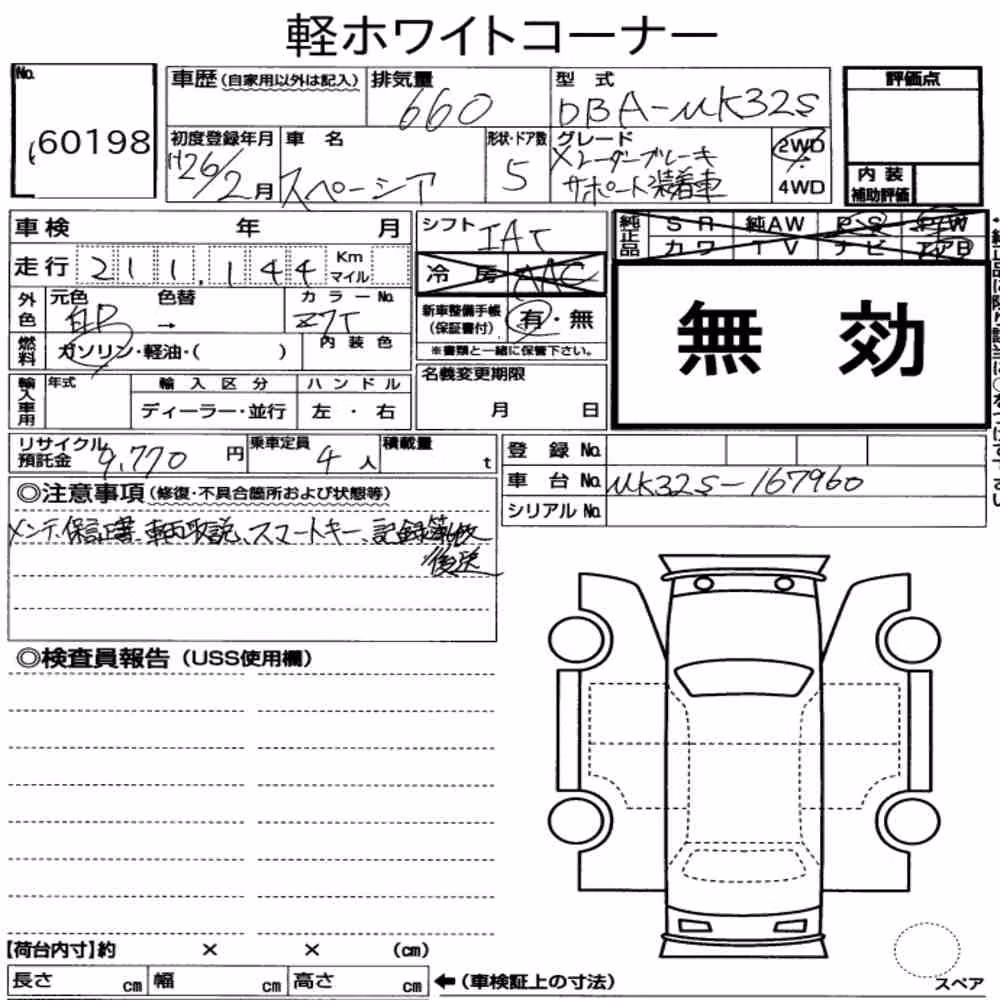 軽ホワイトコーナー
No.
60198
車歴 (自家用以外は記入)
排気量
660
型式
DBA-MK32S
評価点
初度登録年月
H26/2月
車名
スペーシア
形状・ドア数
5
グレード
Xレーダーブレーキ
サポート装着車
2WD
・
4WD
内装
補助評価
車検 年 月
シフト
IAT
純正品
SR 純AW PS PW
カワ TV ナビ エアB
走行 211,144 Km
マイル
冷房 AAC
無効
外色
元色 色替 カラーNo.
→ Z7T
新車整備手帳
(保証書付)
有・無
※書類と一緒に保管下さい。
燃料
ガソリン・軽油・( )
内装色
輸入車用
年式 輸入区分 ハンドル
ディーラー・並行 左・右
名義変更期限
月 日
リサイクル
預託金 9,770 円
乗車定員
4 人
積載量
t
登録No.
車台No. MK32S-167960
シリアルNo.
◎注意事項 (修復・不具合箇所および状態等)
メンテ、保証書、車両取説、スマートキー、記録簿
後送
◎検査員報告 (USS使用欄)
【荷台内寸】約 × × (cm)
長さ cm 幅 cm 高さ cm ←(車検証上の寸法)
スペア